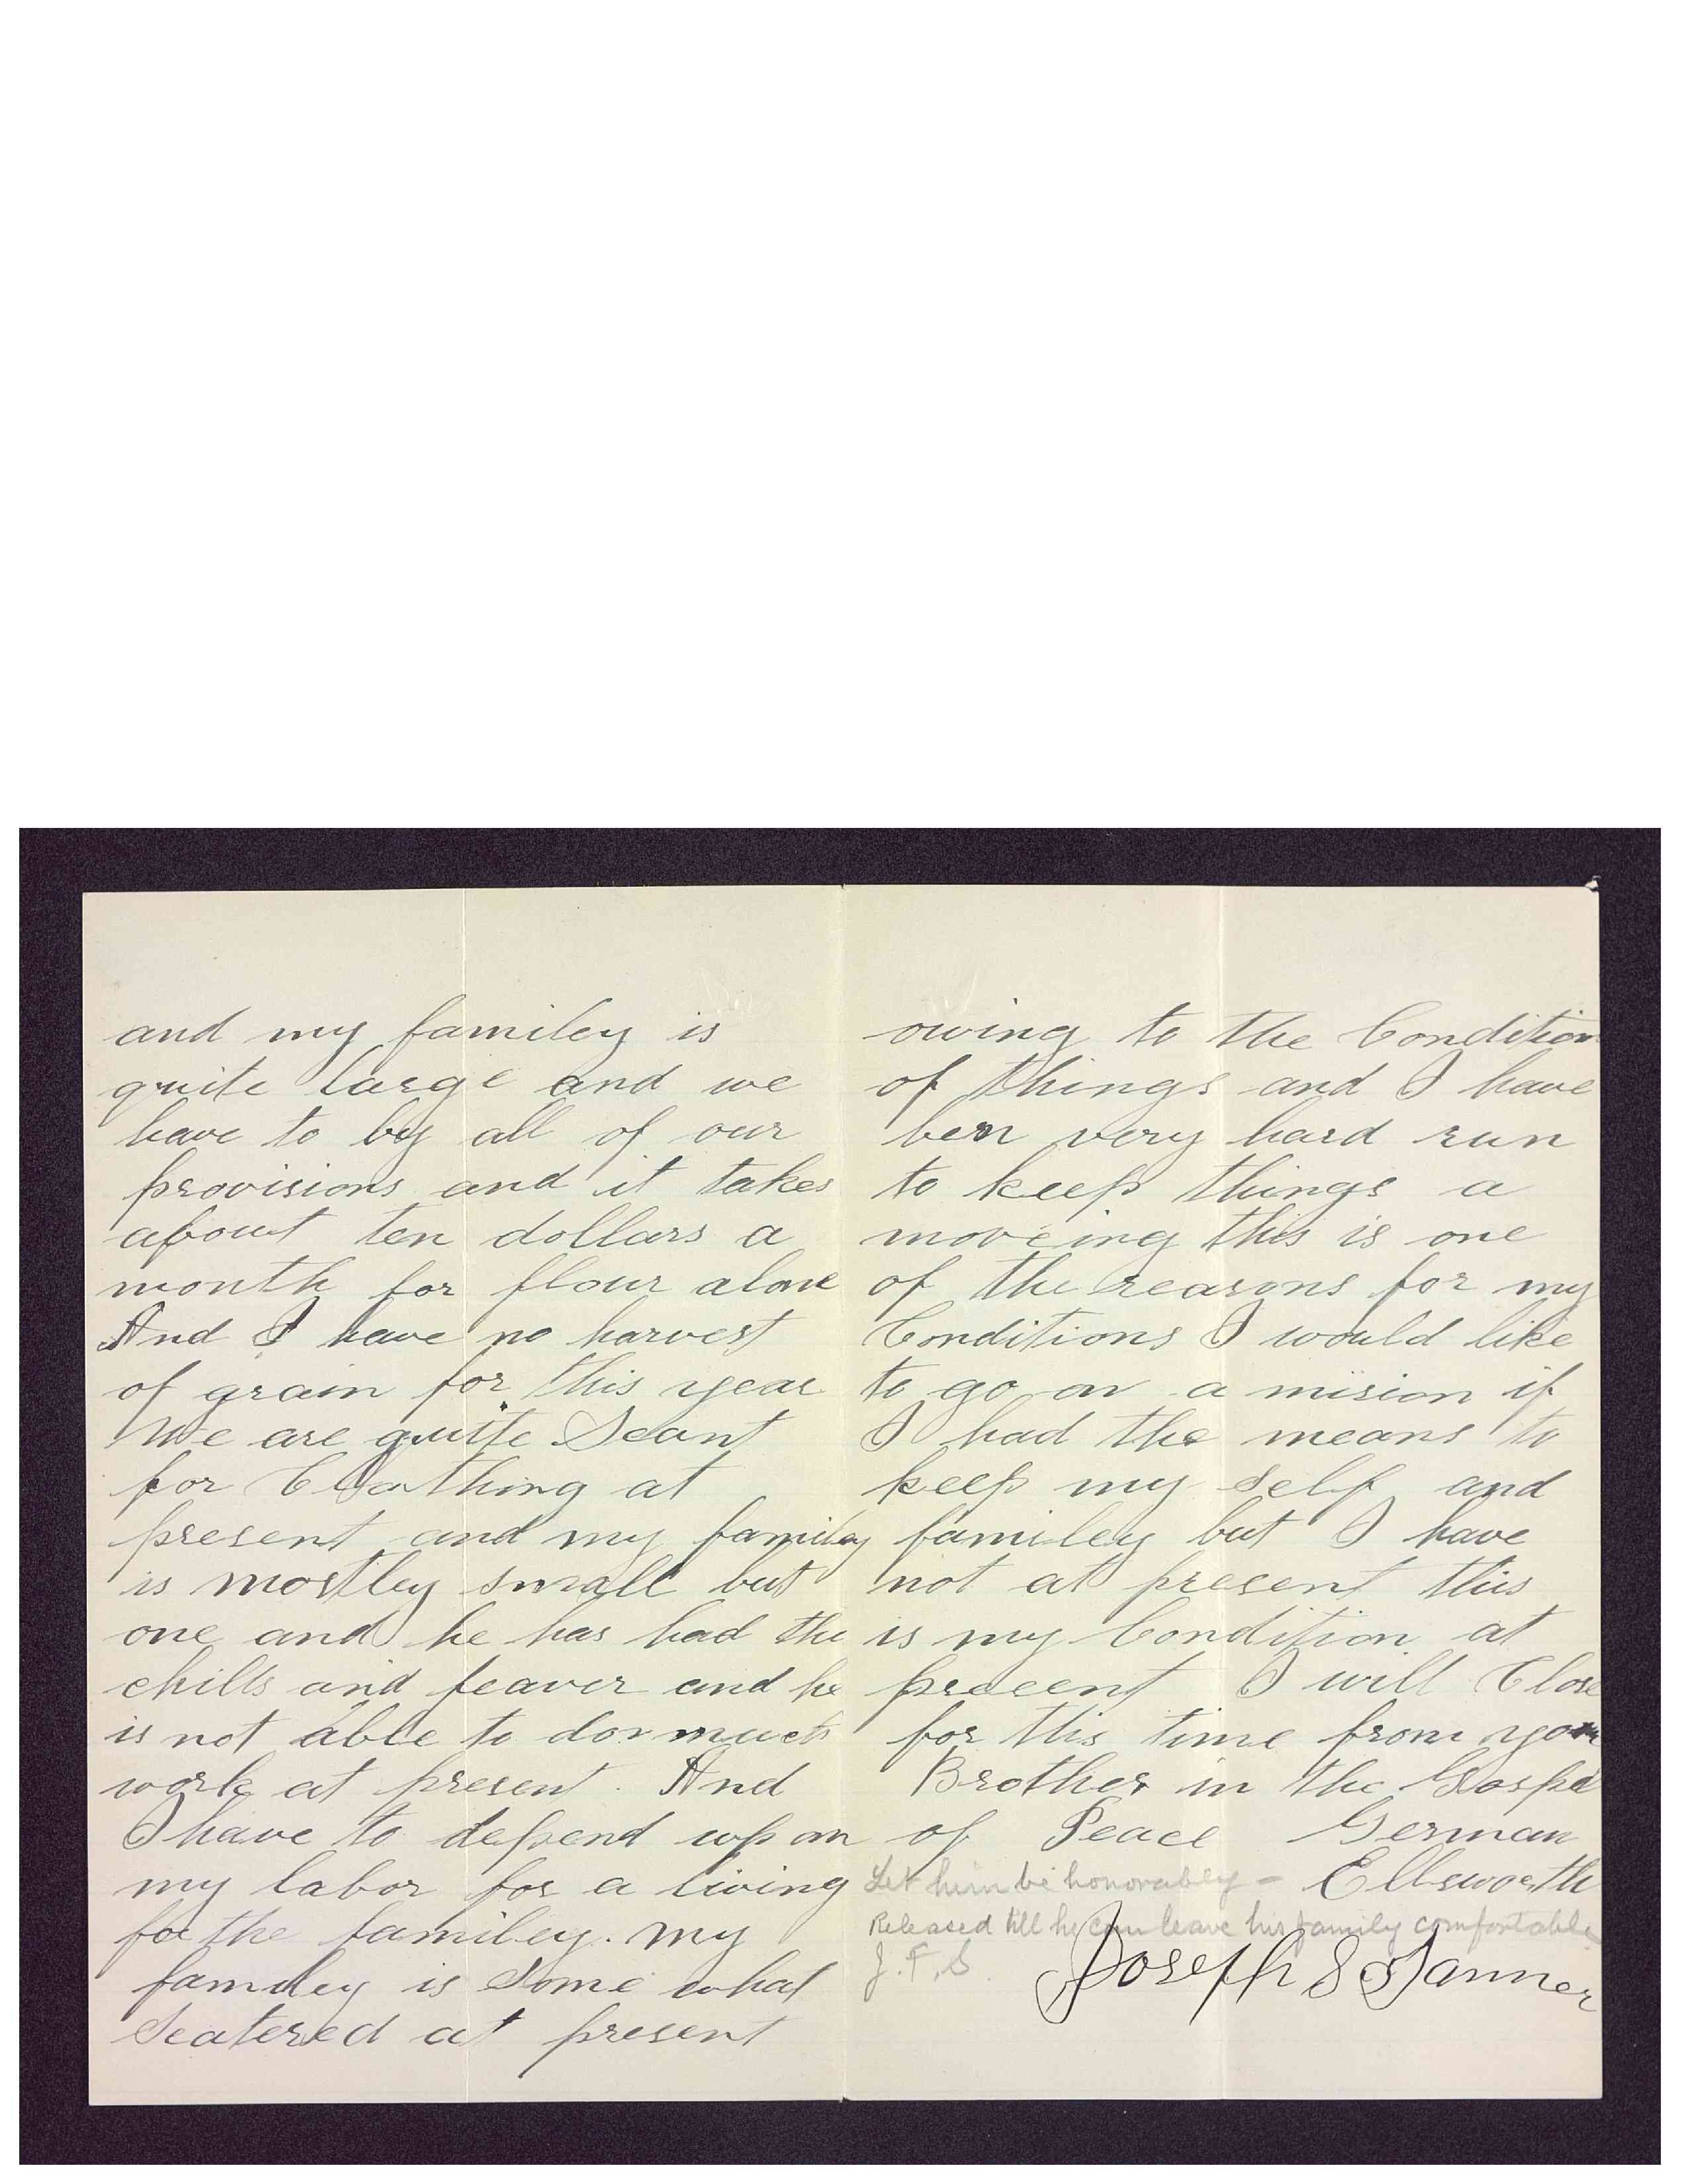 and my familey is
quite large and we
have to by all of our
provisions and it takes
about ten dollars a
month for flour alone
And I have no harvest
of grain for this year
We are quite Scant
for Cloathing at
present and my familey
is mostley small but
one and he has had the
chills and feaver and he
is not able to do much
work at present. And
I have to depend up on
my labor for a living
for the familey. my
familey is Some what
Scatered at present
owing to the Condition
of things and I have
ben very hard run
to keep things a
moveing this is one
of the reasons for my
Conditions I would like
to go on a mision if
I had the means to
keep my Self and
familey but I have
not at present this
is my Condition at
preecent I will Close
for this time from your
Brother in the Gospel
of Peace German
Ellsworth
Let him be honorably -
Released till he can leave his family comfortable
J. F. S.
Joseph S Tanner